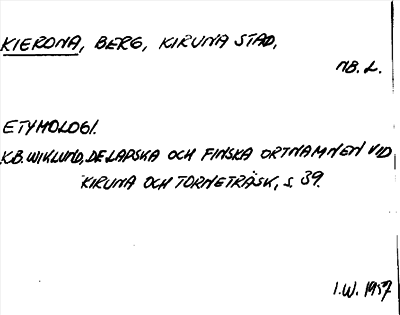 KIERONA, BERG, KIRUNA STAD,
NB. L.
ETYMOLOGI.
K.B. WIKLUND, DE LAPSKA OCH FINSKA ORTNAMNEN VID
KIRUNA OCH TORNETRÄSK, s. 39.
I.W. 1957